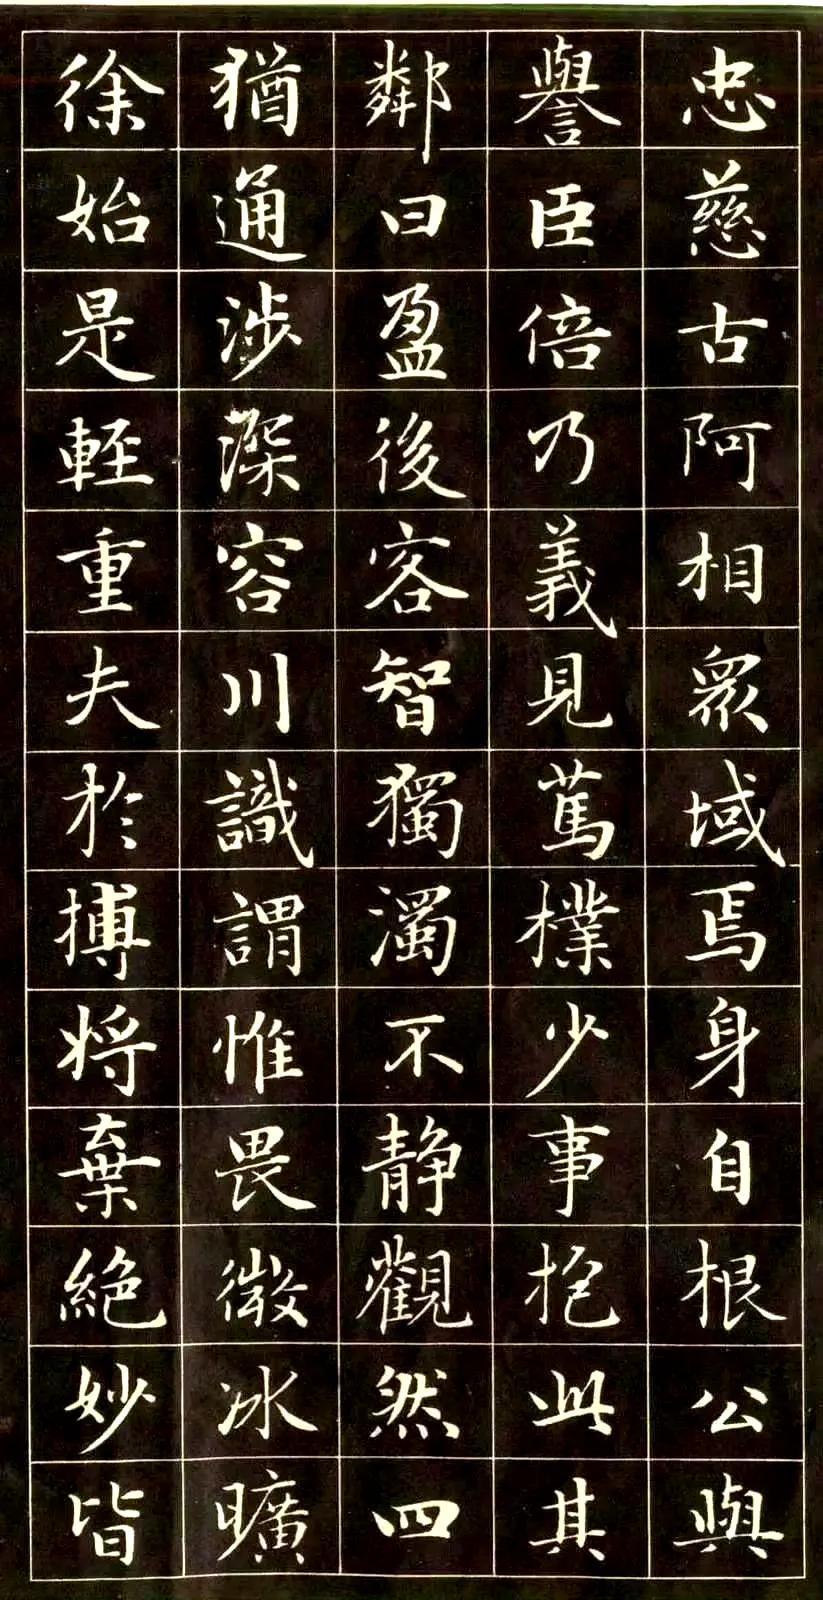 忠慈古阿相衆域焉身自根公與
譽臣倍乃義見篤樸少事抱此其
鄰曰盈後客智獨濁不静觀然四
猶通涉深容川識謂惟畏微冰曠
徐始是輕重夫於搏将棄絶妙皆